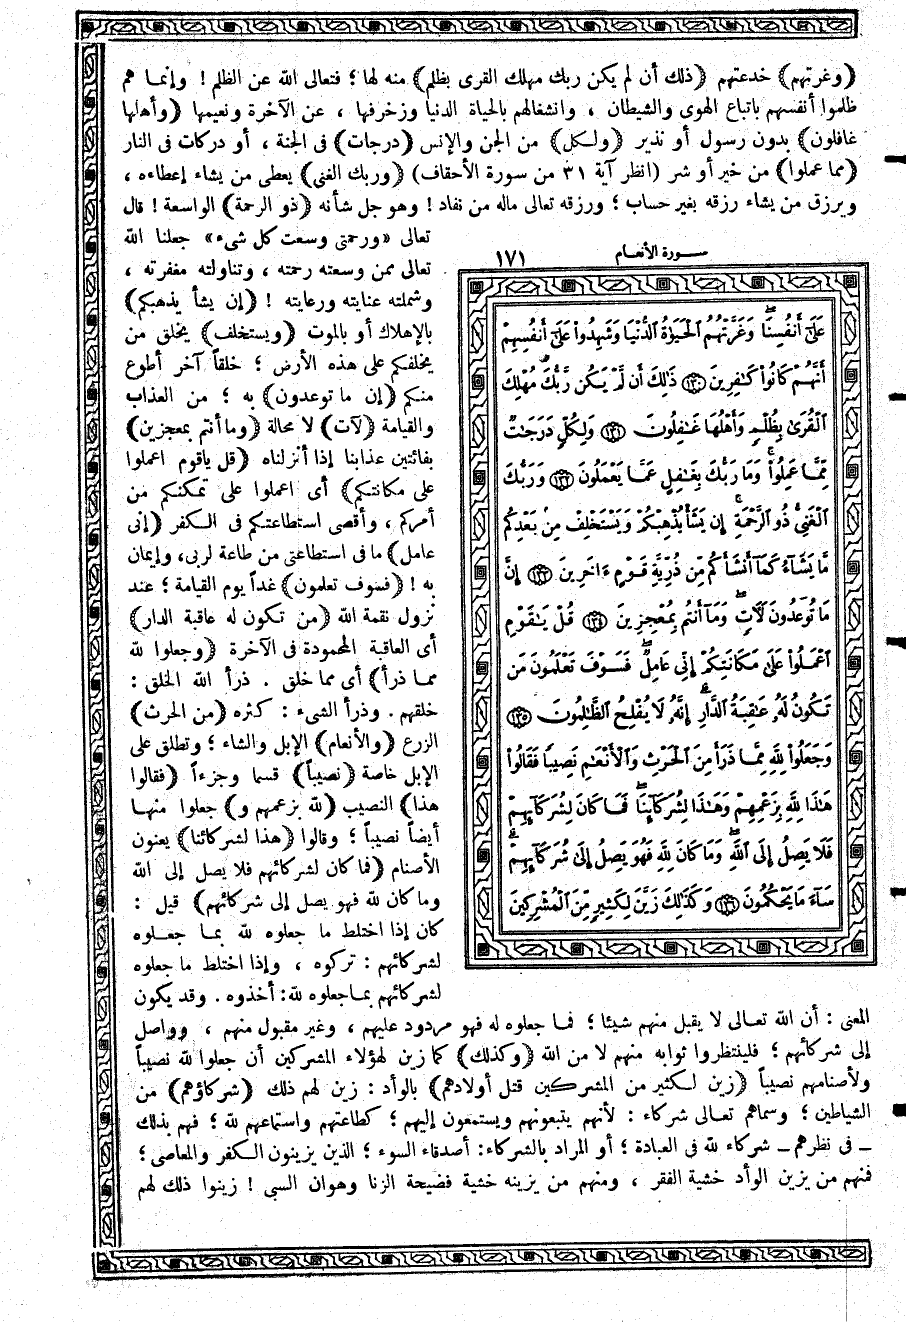 (وغرتهم) خدعتهم (ذلك أن لم يكن ربك مهلك القرى بظلم) منه لها ؛ فتعالى الله عن الظلم ! وإنما هم
ظلموا أنفسهم باتباع الهوى والشيطان ، وانشغالهم بالحياة الدنيا وزخرفها ، عن الآخرة ونعيمها (وأهلها
غافلون) بدون رسول أو نذير (ولكل) من الجن والإنس (درجات) فى الجنة ، أو دركات فى النار
(مما عملوا) من خير أو شر (انظر آية ٣١ من سورة الأحقاف) (وربك الغنى) يعطى من يشاء إعطاءه ،
ويرزق من يشاء رزقه بغير حساب ؛ ورزقه تعالى ماله من نفاد ! وهو جل شأنه (ذو الرحمة) الواسعة ! قال
تعالى «ورحمتى وسعت كل شىء» جعلنا الله
تعالى ممن وسعته رحمته ، وتناولته مغفرته ،
وشملته عنايته ورعايته ! (إن يشأ يذهبكم)
بالإهلاك أو بالموت (ويستخلف) يخلق من
يخلفكم على هذه الأرض ؛ خلقاً آخر أطوع
منكم (إن ما توعدون) به ؛ من العذاب
والقيامة (لآت) لا محالة (وما أنتم بمعجزين)
بفائتين عذابنا إذا أنزلناه (قل ياقوم اعملوا
على مكانتكم) أى اعملوا على تمكنكم من
أمركم ، وأقصى استطاعتكم فى الكفر (إنى
عامل) ما فى استطاعتى من طاعة لربى، وإيمان
به ! (فسوف تعلمون) غداً يوم القيامة ؛ عند
نزول نقمة الله (من تكون له عاقبة الدار)
أى العاقبة المحمودة فى الآخرة (وجعلوا لله
مما ذرأ) أى مما خلق . ذرأ الله الخلق :
خلقهم . وذرأ الشىء : كثره (من الحرث)
الزرع (والأنعام) الإبل والشاء ؛ وتطلق على
الإبل خاصة (نصيباً) قسما وجزءاً (فقالوا
هذا) النصيب (لله بزعمهم و) جعلوا منها
أيضاً نصيباً ؛ وقالوا (هذا لشركائنا) يعنون
الأصنام (فما كان لشركائهم فلا يصل إلى الله
وما كان لله فهو يصل إلى شركائهم) قيل :
كان إذا اختلط ما جعلوه لله بما جعلوه
لشركائهم : تركوه ، وإذا اختلط ما جعلوه
لشركائهم بما جعلوه لله: أخذوه . وقد يكون
سورة الأنعام ١٧١
عَلَىٰٓ أَنفُسِنَاۖ وَغَرَّتْهُمُ ٱلْحَيَوٰةُ ٱلدُّنْيَا وَشَهِدُوا۟ عَلَىٰٓ أَنفُسِهِمْ
أَنَّهُمْ كَانُوا۟ كَـٰفِرِينَ ۝١٣٠ ذَٰلِكَ أَن لَّمْ يَكُن رَّبُّكَ مُهْلِكَ
ٱلْقُرَىٰ بِظُلْمٍ وَأَهْلُهَا غَـٰفِلُونَ ۝١٣١ وَلِكُلٍّ دَرَجَـٰتٌ
مِّمَّا عَمِلُوا۟ۚ وَمَا رَبُّكَ بِغَـٰفِلٍ عَمَّا يَعْمَلُونَ ۝١٣٢ وَرَبُّكَ
ٱلْغَنِىُّ ذُو ٱلرَّحْمَةِۚ إِن يَشَأْ يُذْهِبْكُمْ وَيَسْتَخْلِفْ مِنۢ بَعْدِكُم
مَّا يَشَآءُ كَمَآ أَنشَأَكُم مِّن ذُرِّيَّةِ قَوْمٍ ءَاخَرِينَ ۝١٣٣ إِنَّ
مَا تُوعَدُونَ لَـَٔاتٍۖ وَمَآ أَنتُم بِمُعْجِزِينَ ۝١٣٤ قُلْ يَـٰقَوْمِ
ٱعْمَلُوا۟ عَلَىٰ مَكَانَتِكُمْ إِنِّى عَامِلٌۖ فَسَوْفَ تَعْلَمُونَ مَن
تَكُونُ لَهُۥ عَـٰقِبَةُ ٱلدَّارِۚ إِنَّهُۥ لَا يُفْلِحُ ٱلظَّـٰلِمُونَ ۝١٣٥
وَجَعَلُوا۟ لِلَّهِ مِمَّا ذَرَأَ مِنَ ٱلْحَرْثِ وَٱلْأَنْعَـٰمِ نَصِيبًا فَقَالُوا۟
هَـٰذَا لِلَّهِ بِزَعْمِهِمْ وَهَـٰذَا لِشُرَكَآئِنَاۖ فَمَا كَانَ لِشُرَكَآئِهِمْ
فَلَا يَصِلُ إِلَى ٱللَّهِۖ وَمَا كَانَ لِلَّهِ فَهُوَ يَصِلُ إِلَىٰ شُرَكَآئِهِمْۗ
سَآءَ مَا يَحْكُمُونَ ۝١٣٦ وَكَذَٰلِكَ زَيَّنَ لِكَثِيرٍ مِّنَ ٱلْمُشْرِكِينَ
المعنى : أن الله تعالى لا يقبل منهم شيئا ؛ فما جعلوه له فهو مردود عليهم ، وغير مقبول منهم ، وواصل
إلى شركائهم ؛ فلينتظروا ثوابه منهم لا من الله (وكذلك) كما زين لهؤلاء المشركين أن جعلوا لله نصيباً
ولأصنامهم نصيباً (زين لكثير من المشركين قتل أولادهم) بالوأد : زين لهم ذلك (شركاؤهم) من
الشياطين ؛ وسماهم تعالى شركاء : لأنهم يتبعونهم ويستمعون إليهم ؛ كطاعتهم واستماعهم لله ؛ فهم بذلك
ـ فى نظرهم ـ شركاء لله فى العبادة ؛ أو المراد بالشركاء: أصدقاء السوء ؛ الذين يزينون الكفر والمعاصى ؛
فمنهم من يزين الوأد خشية الفقر ، ومنهم من يزينه خشية فضيحة الزنا وهوان السبى ! زينوا ذلك لهم